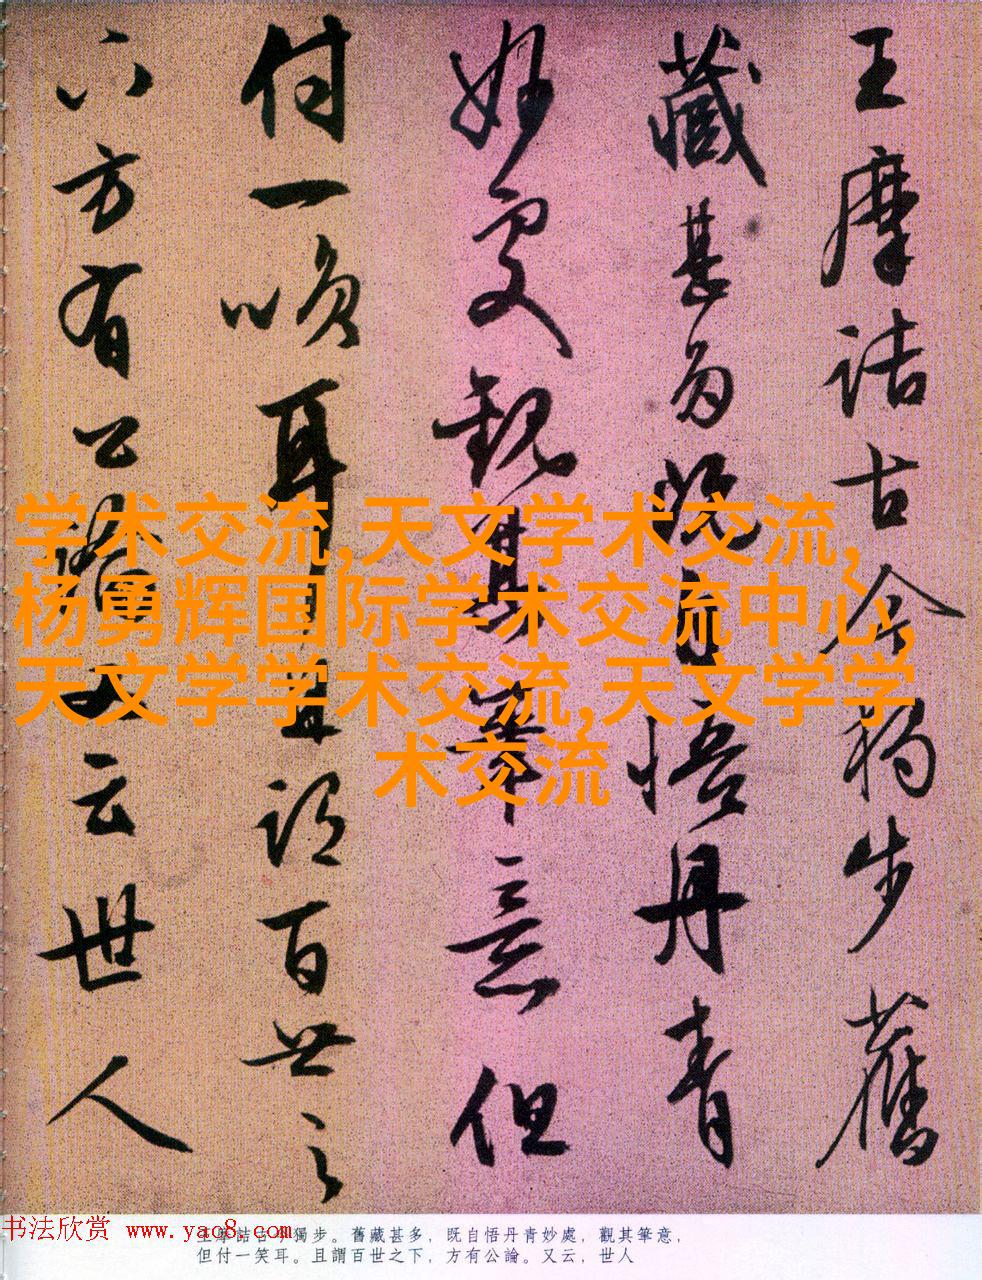 王摩詰古今獨步舊
藏甚多既自悟丹青
妙處觀其筆意但
付一咲耳且謂百世之
下方有公論又云世人
学术交流,天文学术交流,
杨勇辉国际学术交流中心,
天文学学术交流,天文学学
术交流
书法欣赏 www.yac8.com
王摩詰古今獨步。舊藏甚多，既自悟丹青妙處，觀其筆意，
但付一笑耳。且謂百世之下，方有公論。又云，世人